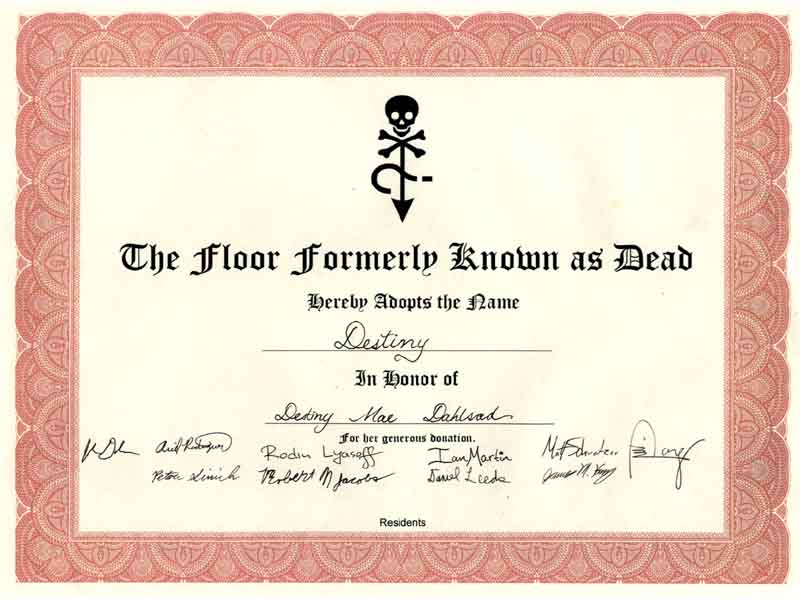 The Floor Formerly Known as Dead
Hereby Adopts the Name
Destiny
In Honor of
Destiny Mae Dahlsad
For her generous donation.
Ariel Rodriguez Rodin Lyasoff Ian Martin Matt
Robert M Jacobs Daniel Leeds James M.
Residents